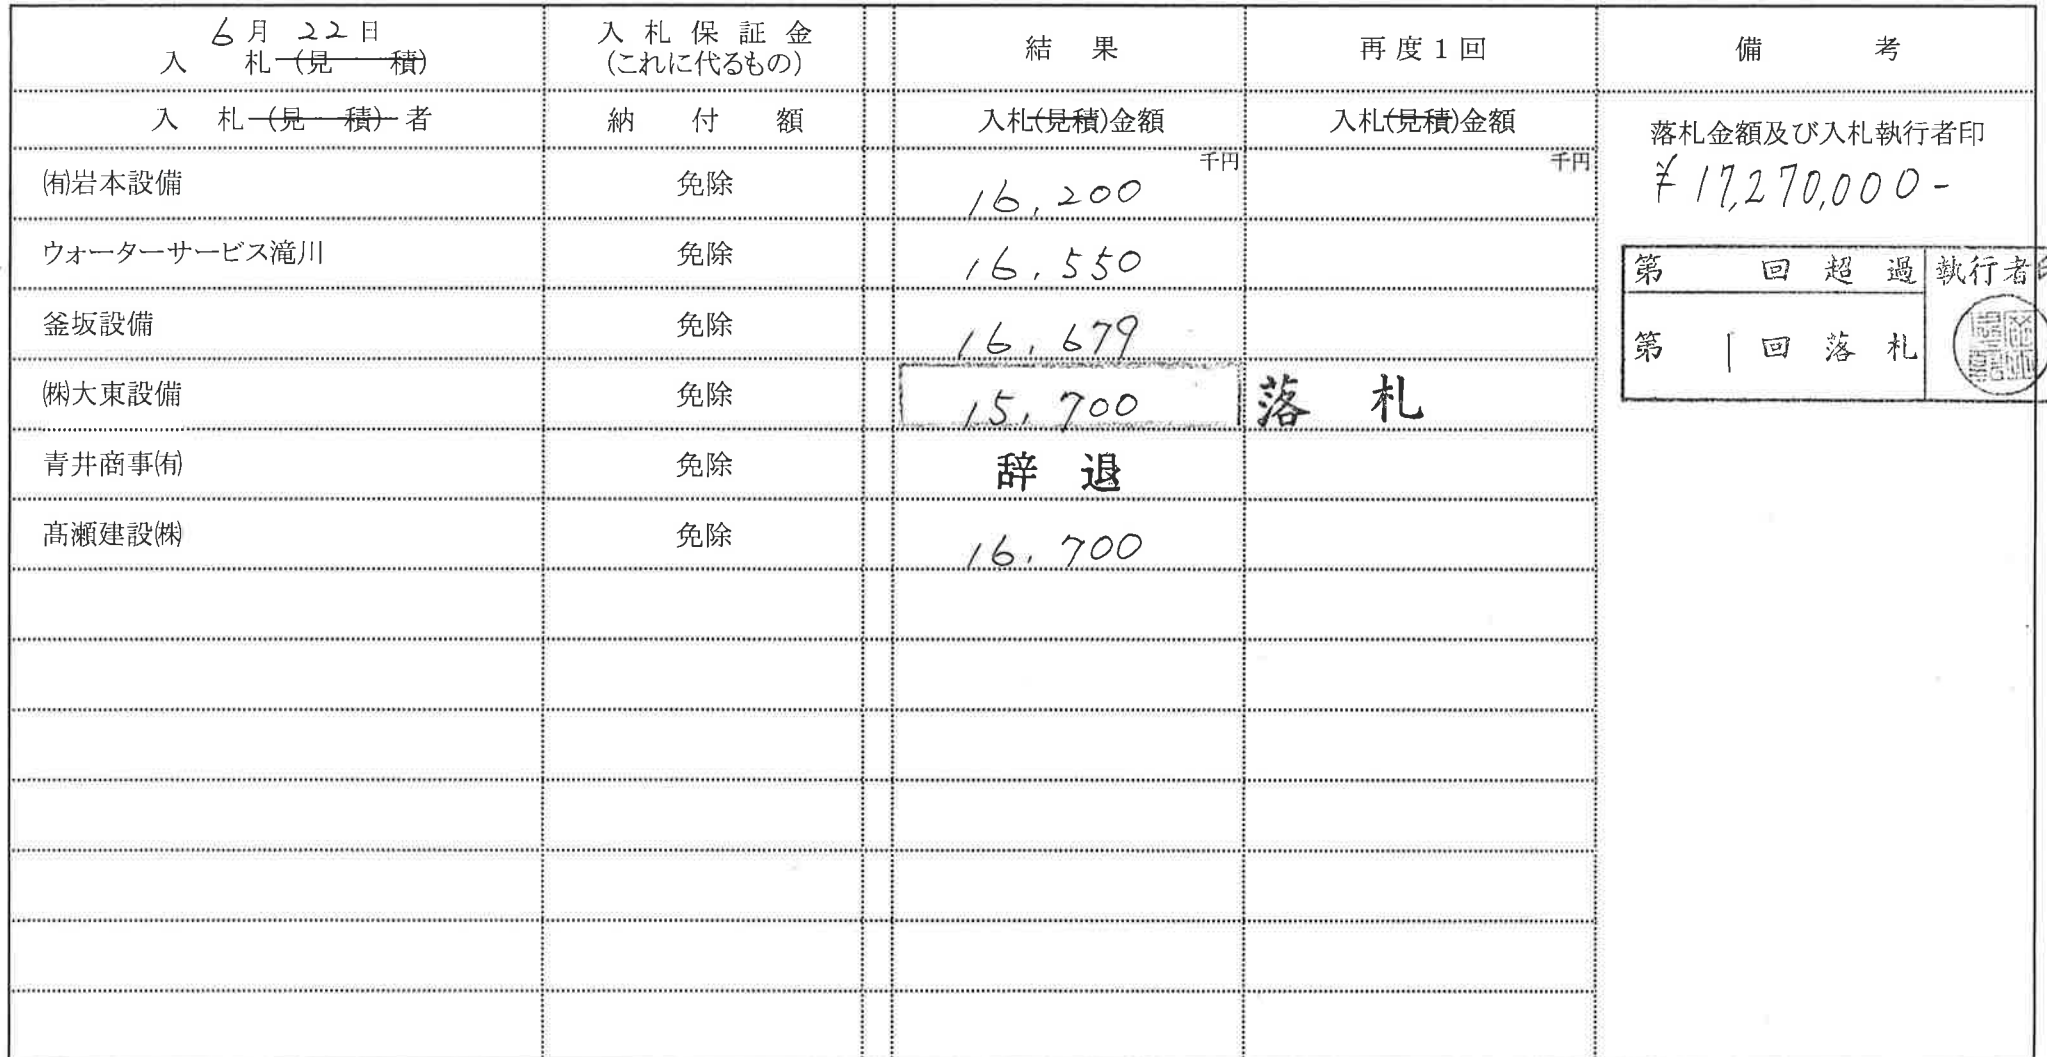 6月 22日
入札(見積)
入札保証金
(これに代るもの)
結果
再度1回
備考
入札(見積)者
納付額
入札(見積)金額
入札(見積)金額
落札金額及び入札執行者印
千円
千円
¥17,270,000-
㈲岩本設備 免除 16,200
ウォーターサービス滝川 免除 16,550
第 回超過 執行者印
釜坂設備 免除 16,679
第1回落札
㈱大東設備 免除 15,700 落札
青井商事㈲ 免除 辞退
髙瀬建設㈱ 免除 16,700